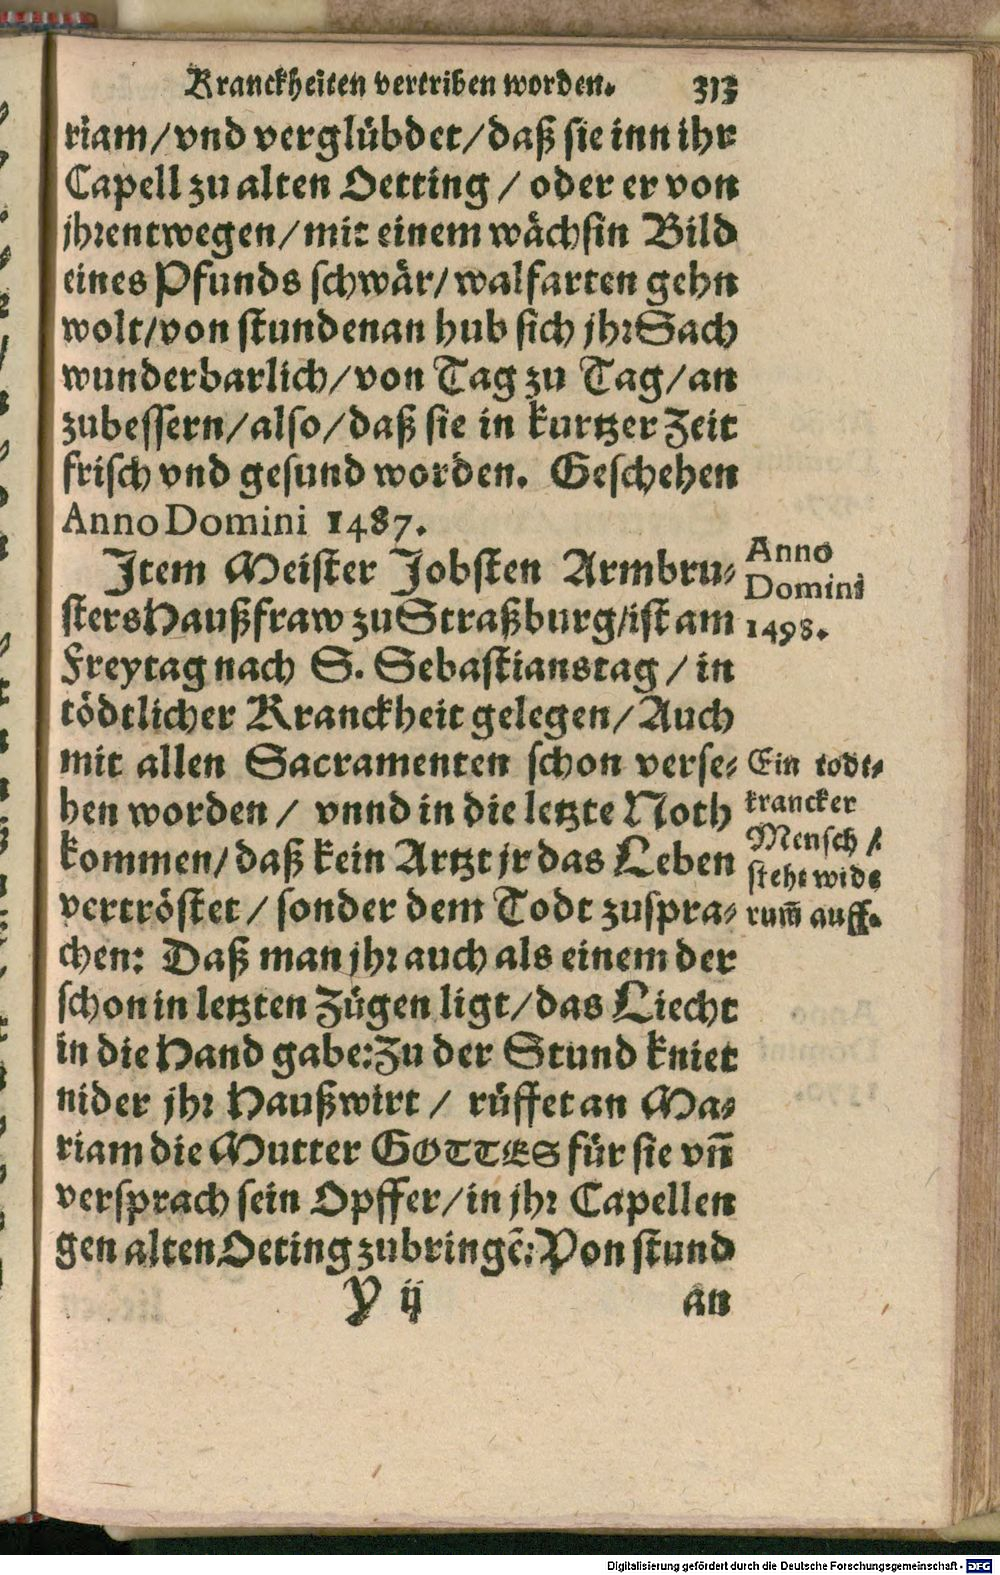 Kranckheiten vertriben worden. 313
riam/vnd verglübdet/daß sie inn ihr
Capell zu alten Oetting / oder er von
jhrentwegen/mit einem wächsin Bild
eines Pfunds schwär/walfarten gehn
wolt/von stundenan hub sich jhr Sach
wunderbarlich/von Tag zu Tag/an
zubessern/also/daß sie in kurtzer Zeit
frisch vnd gesund worden. Geschehen
Anno Domini 1487.
Item Meister Jobsten Armbru-
sters Haußfraw zu Straßburg/ist am
Freytag nach S. Sebastianstag / in
tödtlicher Kranckheit gelegen/Auch
mit allen Sacramenten schon verse-
hen worden / vnnd in die letzte Noth
kommen/daß kein Artzt jr das Leben
vertröstet / sonder dem Todt zuspra-
chen: Daß man jhr auch als einem der
schon in letzten Zügen ligt/das Liecht
in die Hand gabe:Zu der Stund kniet
nider jhr Haußwirt / rüffet an Ma-
riam die Mutter GOTTES für sie vn̄
versprach sein Opffer/in jhr Capellen
gen alten Oeting zubringē:Von stund
Y ij an
Anno
Domini
1498.
Ein todt-
krancker
Mensch /
steht wide
rum̄ auff.
Digitalisierung gefördert durch die Deutsche Forschungsgemeinschaft - DFG